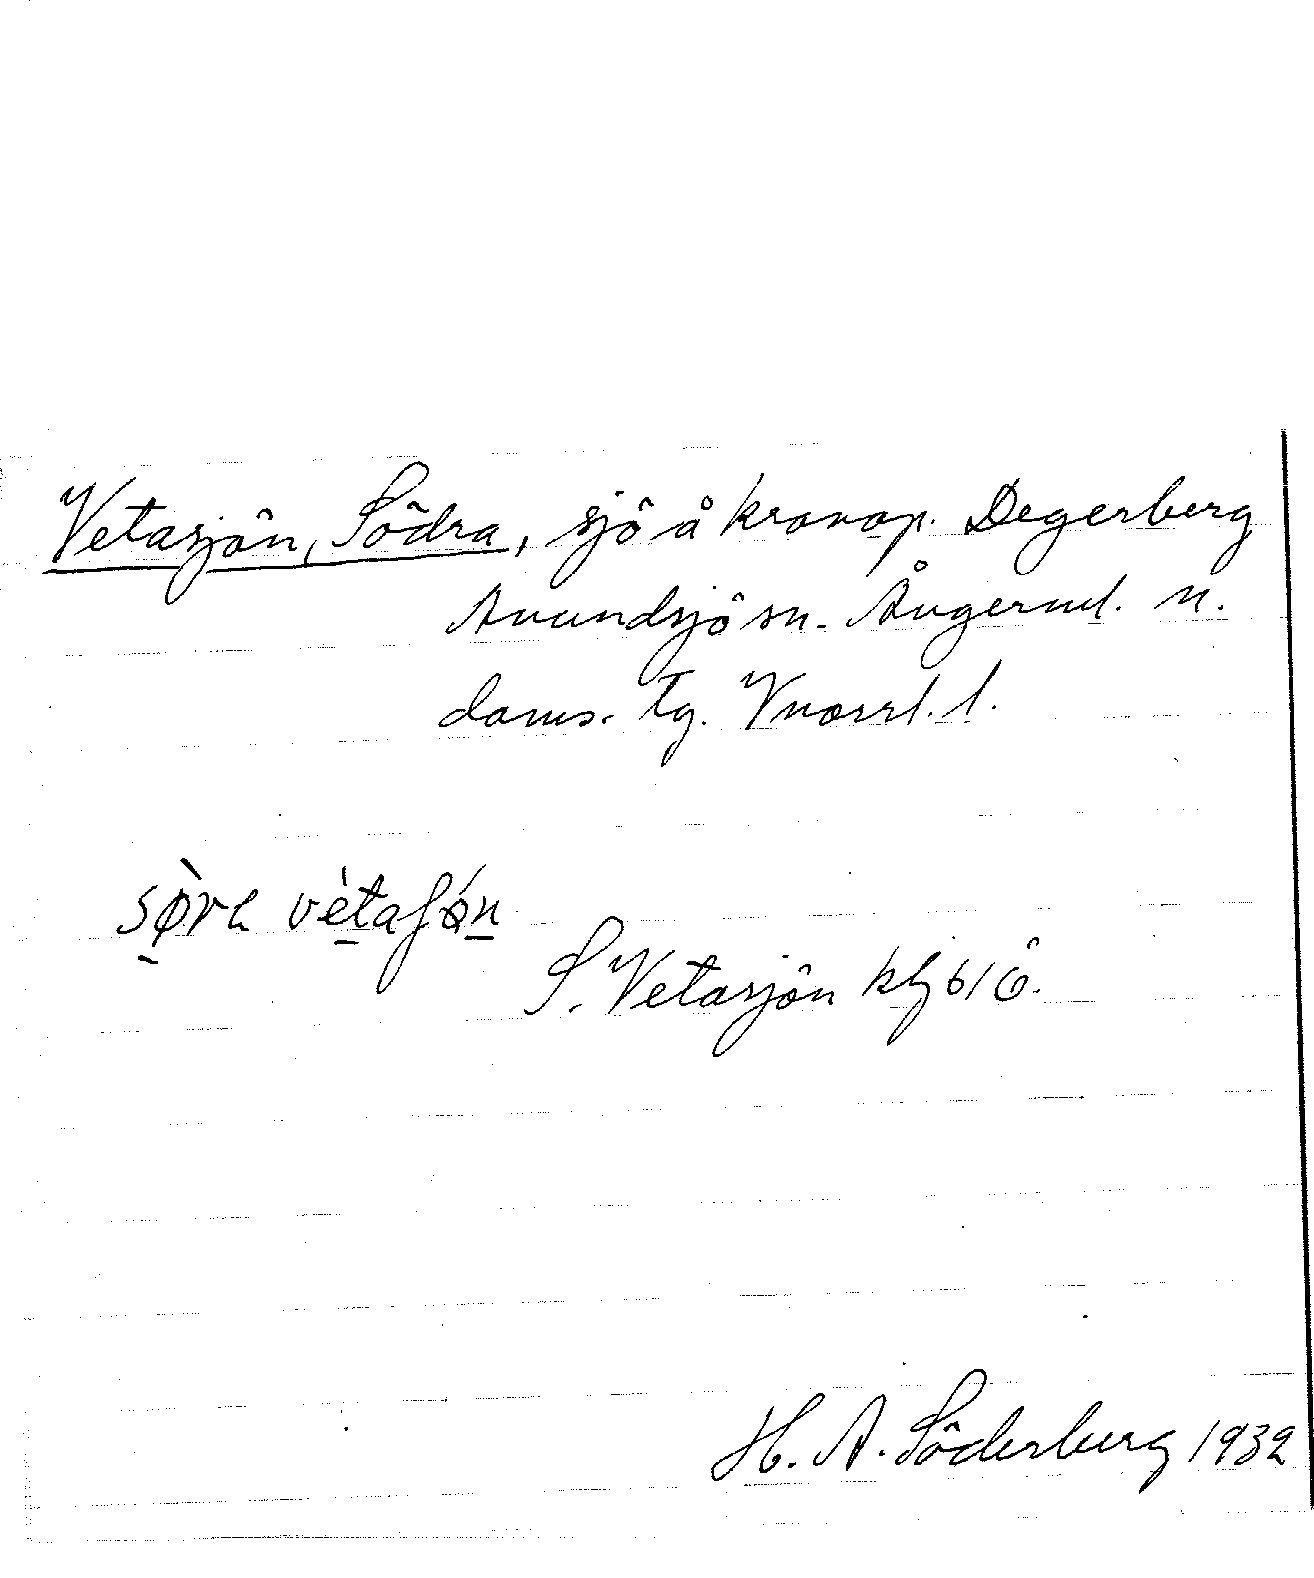 Vetasjön, Södra, sjö å kronop. Degerberg
Anundsjö sn. Ångerml. n.
doms. tg. Vnorrl. l.
sø̀ra vètaʃǿn
S. Vetasjön klj 61 Ö.
H. A. Söderberg 1932